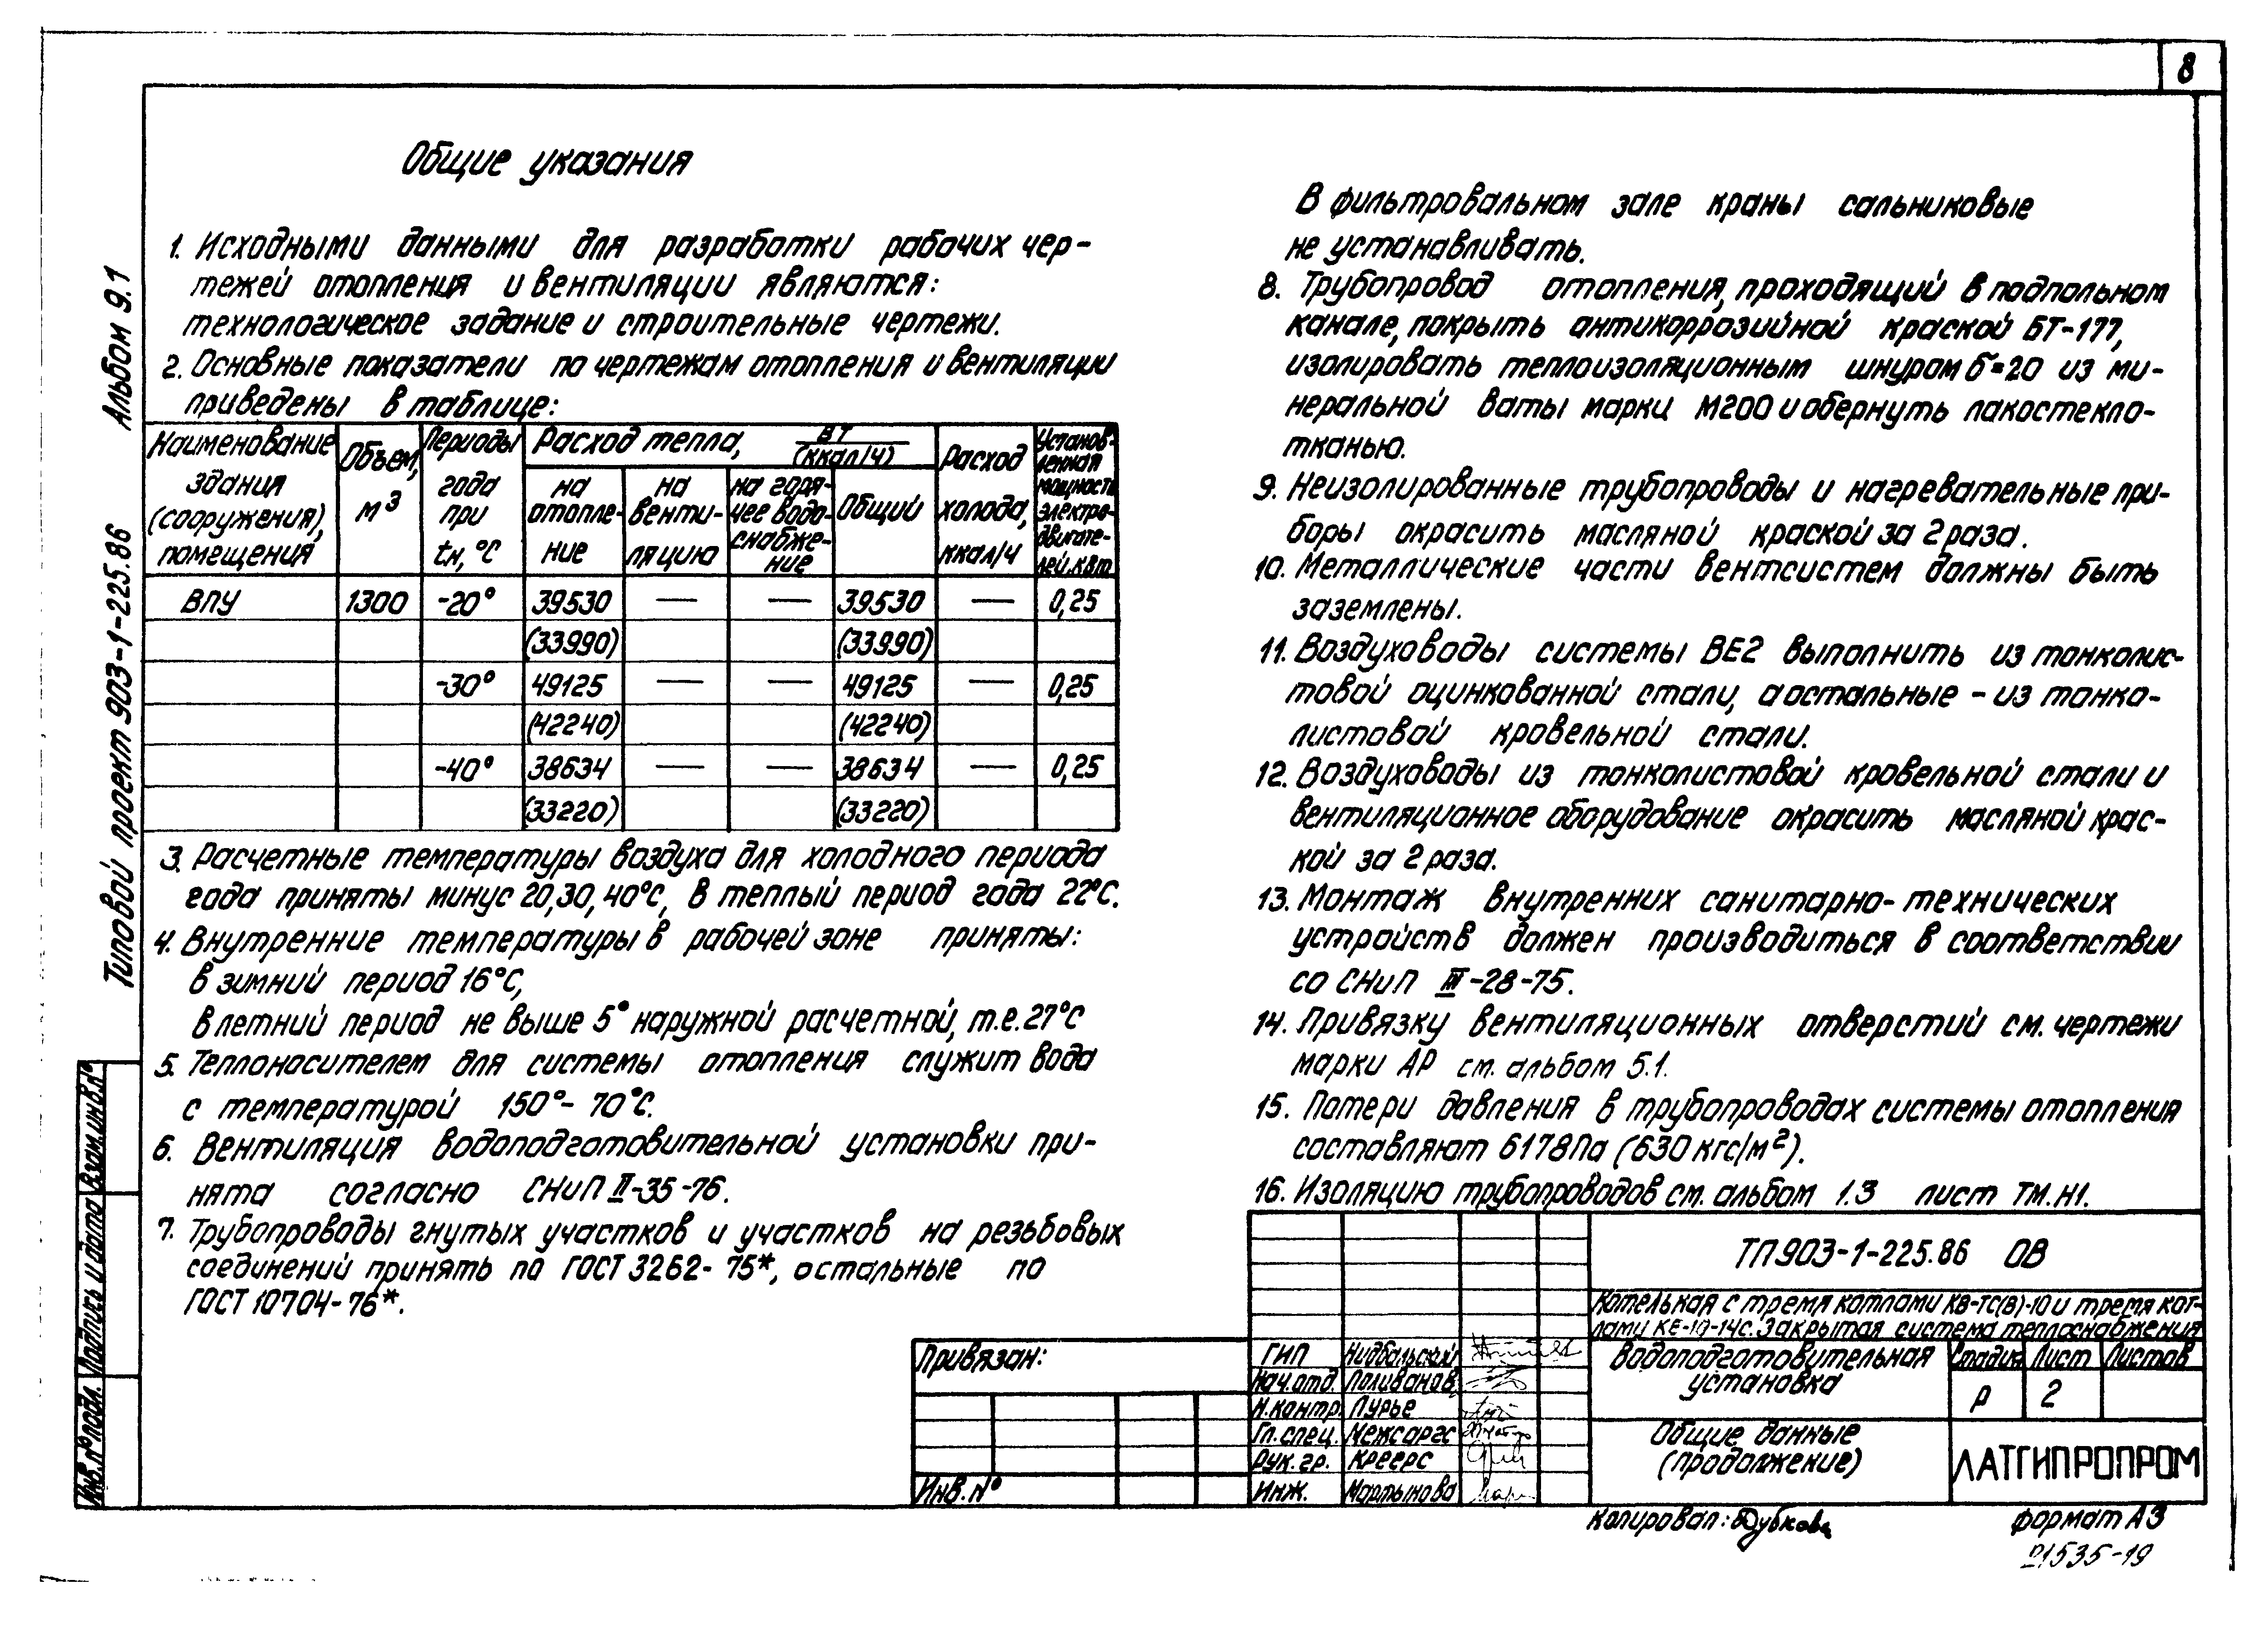 8
Альбом 9.1
Типовой проект 903-1-225.86
Общие указания
1. Исходными данными для разработки рабочих чер-
тежей отопления и вентиляции являются:
технологическое задание и строительные чертежи.
2. Основные показатели по чертежам отопления и вентиляции
приведены в таблице:
Наименование здания (сооружения), помещения | Объем, м³ | Периоды года при tн, °С | Расход тепла, Вт (ккал/ч) | Расход холода, ккал/ч | Установ-ленная мощность электро-двигате-лей, кВт
на отопле-ние | на венти-ляцию | на горя-чее водо-снабже-ние | Общий
ВПУ 1300 -20° 39530 — — 39530 — 0,25
(33990) (33990)
-30° 49125 — — 49125 — 0,25
(42240) (42240)
-40° 38634 — — 38634 — 0,25
(33220) (33220)
3. Расчетные температуры воздуха для холодного периода
года приняты минус 20, 30, 40°С, в теплый период года 22°С.
4. Внутренние температуры в рабочей зоне приняты:
в зимний период 16°С,
в летний период не выше 5° наружной расчетной, т.е. 27°С
5. Теплоносителем для системы отопления служит вода
с температурой 150°- 70°С.
6. Вентиляция водоподготовительной установки при-
нята согласно СНиП II-35-76.
7. Трубопроводы гнутых участков и участков на резьбовых
соединений принять по ГОСТ 3262-75*, остальные по
ГОСТ 10704-76*.
В фильтровальном зале краны сальниковые
не устанавливать.
8. Трубопровод отопления, проходящий в подпольном
канале, покрыть антикоррозийной краской БТ-177,
изолировать теплоизоляционным шнуром б=20 из ми-
неральной ваты марки М200 и обернуть лакостекло-
тканью.
9. Неизолированные трубопроводы и нагревательные при-
боры окрасить масляной краской за 2 раза.
10. Металлические части вентсистем должны быть
заземлены.
11. Воздуховоды системы ВЕ2 выполнить из тонколис-
товой оцинкованной стали, а остальные - из тонко-
листовой кровельной стали.
12. Воздуховоды из тонколистовой кровельной стали и
вентиляционное оборудование окрасить масляной крас-
кой за 2 раза.
13. Монтаж внутренних санитарно-технических
устройств должен производиться в соответствии
со СНиП III-28-75.
14. Привязку вентиляционных отверстий см. чертежи
марки АР см. альбом 5.1.
15. Потери давления в трубопроводах системы отопления
составляют 6178Па (630 кгс/м²).
16. Изоляцию трубопроводов см. альбом 1.3 лист ТМ.Н1.
ТП 903-1-225.86 ОВ
Котельная с тремя котлами КВ-ТС(В)-10 и тремя кот-
лами КЕ-10-14С. Закрытая система теплоснабжения
Водоподготовительная
установка
Стадия Лист Листов
Р 2
Общие данные
(продолжение)
ЛАТГИПРОПРОМ
ГИП Нидбальский
Нач.отд. Поливанов
Н.контр. Лурье
Гл.спец. Межсаргс
Рук.гр. Креерс
Инж. Мартынова
Привязан:
Инв.№
Инв.№ подл. Подпись и дата Взам.инв.№
Копировал: Дубкова
Формат А3
21535-19